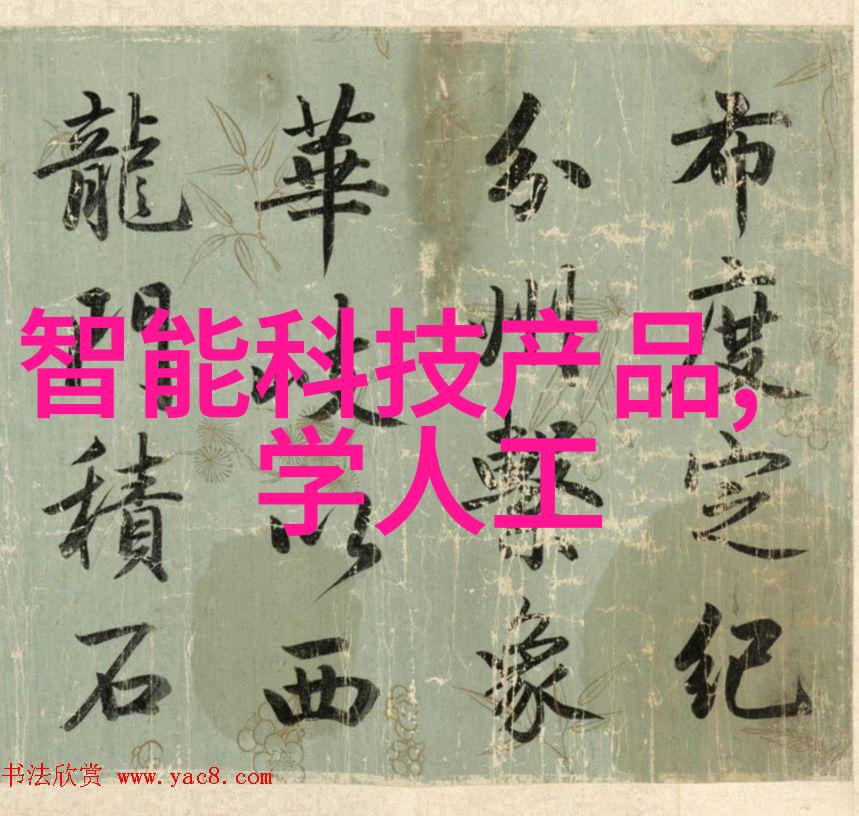 布度定紀
分州繫象
華岐以西
龍門積石
智能科技产品,
学人工
书法欣赏 www.yac8.com